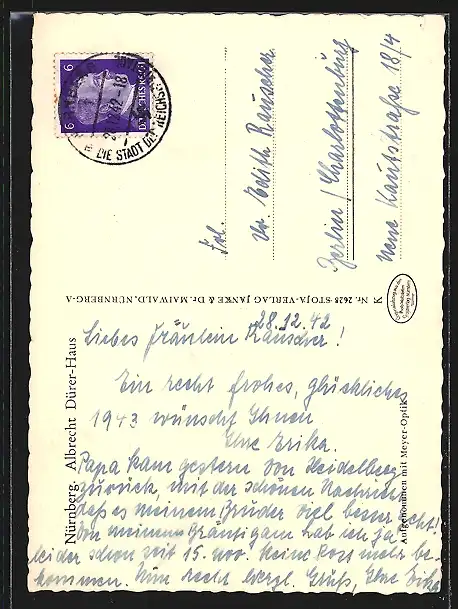 6
6
DEUTSCHES REICH
42-18
DIE STADT DER REICHS
Frl.
Dr. Edith Rauscher
Berlin / Charlottenburg
Neue Kantstraße 18/4
Nr. 2625 · STOJA-VERLAG JANKE & Dr. MAIWALD, NÜRNBERG-A
Nürnberg. Albrecht Dürer-Haus
Aufgenommen mit Meyer-Optik
28.12.42
Liebes Fräulein Rauscher!
Ein recht frohes, glückliches
1943 wünscht Ihnen
Ihre Erika.
Papa kam gestern von Heidelberg
zurück, mit der schönen Nachricht
daß es meinem Bruder viel besser geht!
Von meinem Bräutigam hab ich ja
leider schon seit 15. Nov. keine Post mehr be-
kommen. Nun recht herzl. Grüße, Ihre Erika